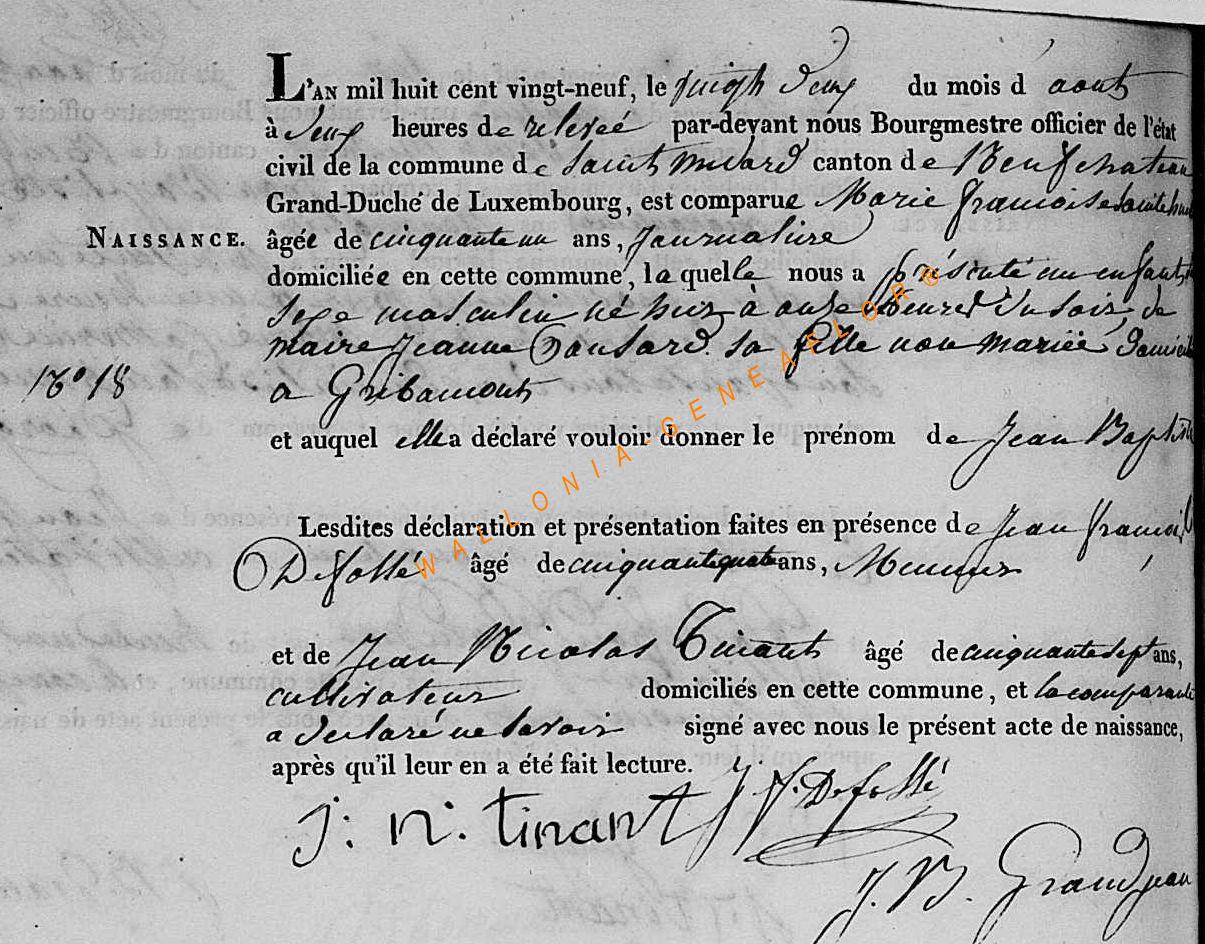 L'AN mil huit cent vingt-neuf, le vingt deux du mois d aout
à deux heures de relevée par-devant nous Bourgmestre officier de l'état
civil de la commune de Saint medard canton de Neufchateau
Grand-Duché de Luxembourg, est comparue Marie francoise
NAISSANCE. âgée de cinquante un ans, Journaliere
domiciliée en cette commune, la quelle nous a présenté un enfant
sexe masculin né hier à onze heures du soir de
marie Jeanne Hansard sa fille non mariée
N° 18 a Gribamont
et auquel elle a déclaré vouloir donner le prénom de Jean Baptiste
Lesdites déclaration et présentation faites en présence de Jean francois
Defossé âgé de cinquante quatre ans, Meunier
et de Jean Nicolas Tinant âgé de cinquante sept ans,
cultivateur domiciliés en cette commune, et la comparante
a declaré ne savoir signé avec nous le présent acte de naissance,
après qu'il leur en a été fait lecture.
J. f. Defossé
j: n: tinant
J. B. Grandjean
WALLONIA-GENEAFLOR©